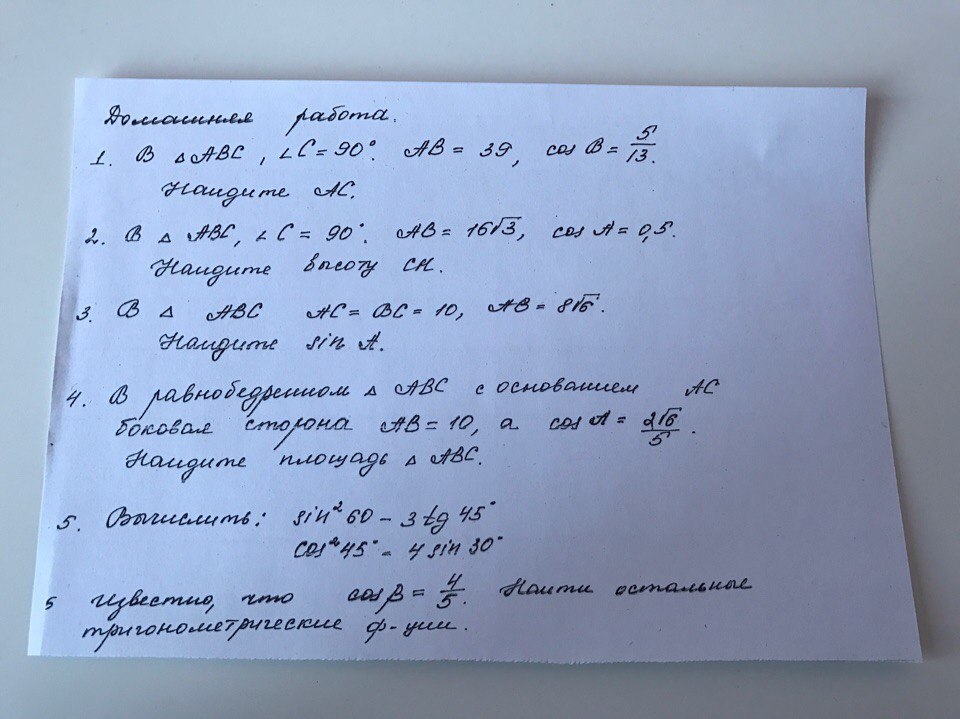 Домашняя работа.
1. В △ABC, ∠C = 90°. AB = 39, cos B = 5/13.
Найдите AC.
2. В △ ABC, ∠C = 90°. AB = 16√3, cos A = 0,5.
Найдите высоту CH.
3. В △ ABC AC = BC = 10, AB = 8√6.
Найдите sin A.
4. В равнобедренном △ ABC с основанием AC
боковая сторона AB = 10, а cos A = 2√6/5.
Найдите площадь △ ABC.
5. Вычислить: sin²60 – 3 tg 45°
cos²45° – 4 sin 30°
5 Известно, что cos β = 4/5. Найти остальные
тригонометрические ф-ции.